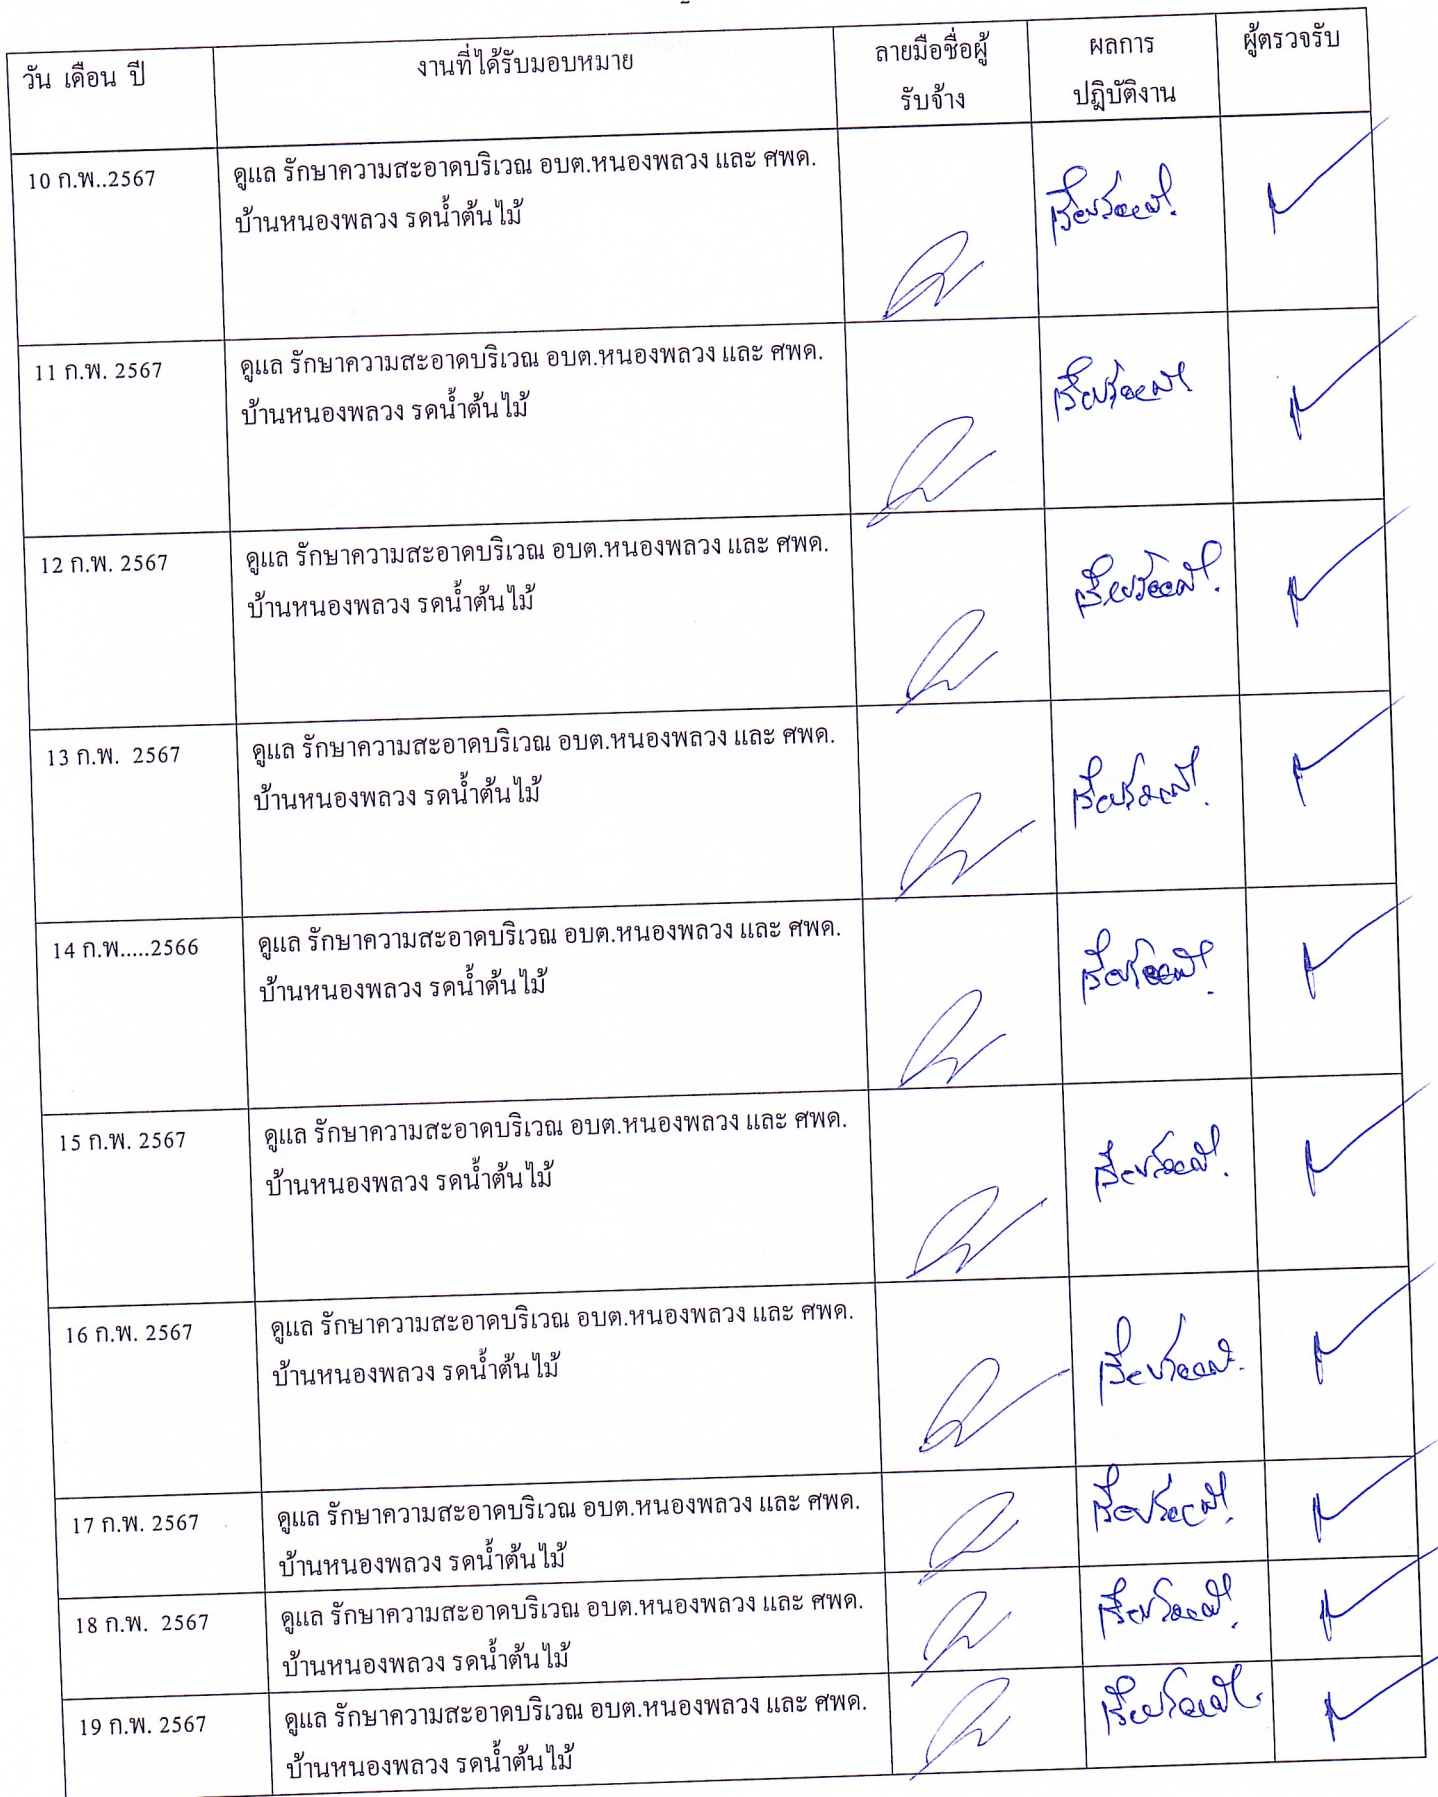 2
วัน เดือน ปี
งานที่ได้รับมอบหมาย
ลายมือชื่อผู้
รับจ้าง
ผลการ
ปฏิบัติงาน
ผู้ตรวจรับ
10 ก.พ..2567
ดูแล รักษาความสะอาดบริเวณ อบต.หนองพลวง และ ศพด.
บ้านหนองพลวง รดน้ำต้นไม้
เรียบร้อยดี
11 ก.พ. 2567
ดูแล รักษาความสะอาดบริเวณ อบต.หนองพลวง และ ศพด.
บ้านหนองพลวง รดน้ำต้นไม้
เรียบร้อยดี
12 ก.พ. 2567
ดูแล รักษาความสะอาดบริเวณ อบต.หนองพลวง และ ศพด.
บ้านหนองพลวง รดน้ำต้นไม้
เรียบร้อยดี
13 ก.พ. 2567
ดูแล รักษาความสะอาดบริเวณ อบต.หนองพลวง และ ศพด.
บ้านหนองพลวง รดน้ำต้นไม้
เรียบร้อยดี
14 ก.พ.....2566
ดูแล รักษาความสะอาดบริเวณ อบต.หนองพลวง และ ศพด.
บ้านหนองพลวง รดน้ำต้นไม้
เรียบร้อยดี
15 ก.พ. 2567
ดูแล รักษาความสะอาดบริเวณ อบต.หนองพลวง และ ศพด.
บ้านหนองพลวง รดน้ำต้นไม้
เรียบร้อยดี
16 ก.พ. 2567
ดูแล รักษาความสะอาดบริเวณ อบต.หนองพลวง และ ศพด.
บ้านหนองพลวง รดน้ำต้นไม้
เรียบร้อยดี
17 ก.พ. 2567
ดูแล รักษาความสะอาดบริเวณ อบต.หนองพลวง และ ศพด.
บ้านหนองพลวง รดน้ำต้นไม้
เรียบร้อยดี
18 ก.พ. 2567
ดูแล รักษาความสะอาดบริเวณ อบต.หนองพลวง และ ศพด.
บ้านหนองพลวง รดน้ำต้นไม้
เรียบร้อยดี
19 ก.พ. 2567
ดูแล รักษาความสะอาดบริเวณ อบต.หนองพลวง และ ศพด.
บ้านหนองพลวง รดน้ำต้นไม้
เรียบร้อยดี